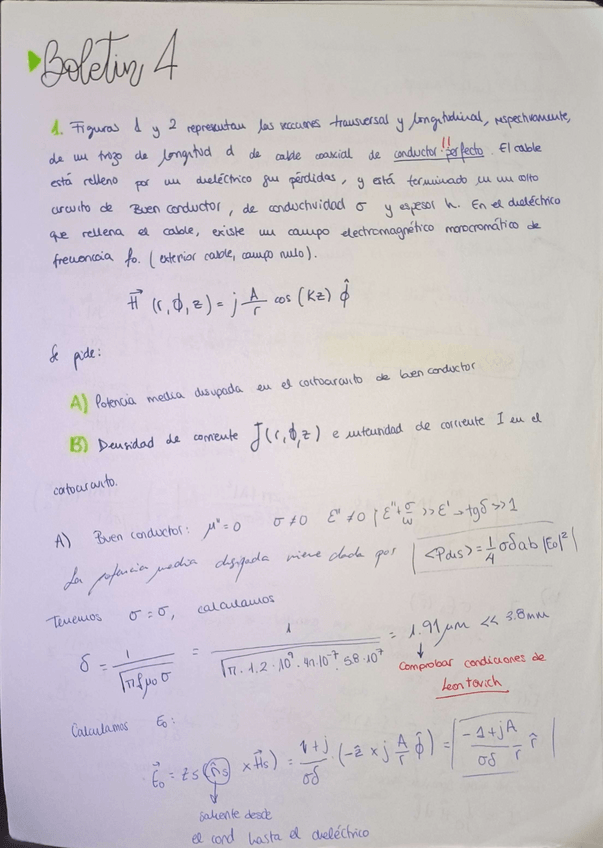 Boletin 4
1. Figuras 1 y 2 representan las secciones transversal y longitudinal, respectivamente,
de un trozo de longitud d de cable coaxial de conductor !! perfecto. El cable
está relleno por un dieléctrico sin pérdidas, y está terminado en un corto
circuito de Buen conductor, de conductividad σ y espesor h. En el dieléctrico
que rellena el cable, existe un campo electromagnético monocromático de
frecuencia fo. (exterior cable, campo nulo).
H⃗ (r,ϕ,z) = j A/r cos (Kz) ϕ̂
Se pide:
A) Potencia media disipada en el cortocircuito de buen conductor
B) Densidad de corriente J⃗(r,ϕ,z) e intensidad de corriente I en el
cortocircuito.
A) Buen conductor: μ''=0 σ≠0 ε''≠0 | ε''+σ/ω >> ε' → tgδ >> 1
La potencia media disipada viene dada por <Pdis> = 1/4 σδab |Eo|²
Tenemos σ=σ, calculamos
δ = 1/√(πfμoσ) = 1/√(π·1,2·10⁹·4π·10⁻⁷·5.8·10⁷) = 1.91 μm << 3.8mm
Comprobar condiciones de
Leontovich
Calculamos Eo:
E⃗o = Zs (n̂s × H⃗s) = (1+j)/σδ (-ẑ × j A/r ϕ̂) = (-1+jA)/σδ r̂/r
saliente desde
el cond hasta el dieléctrico